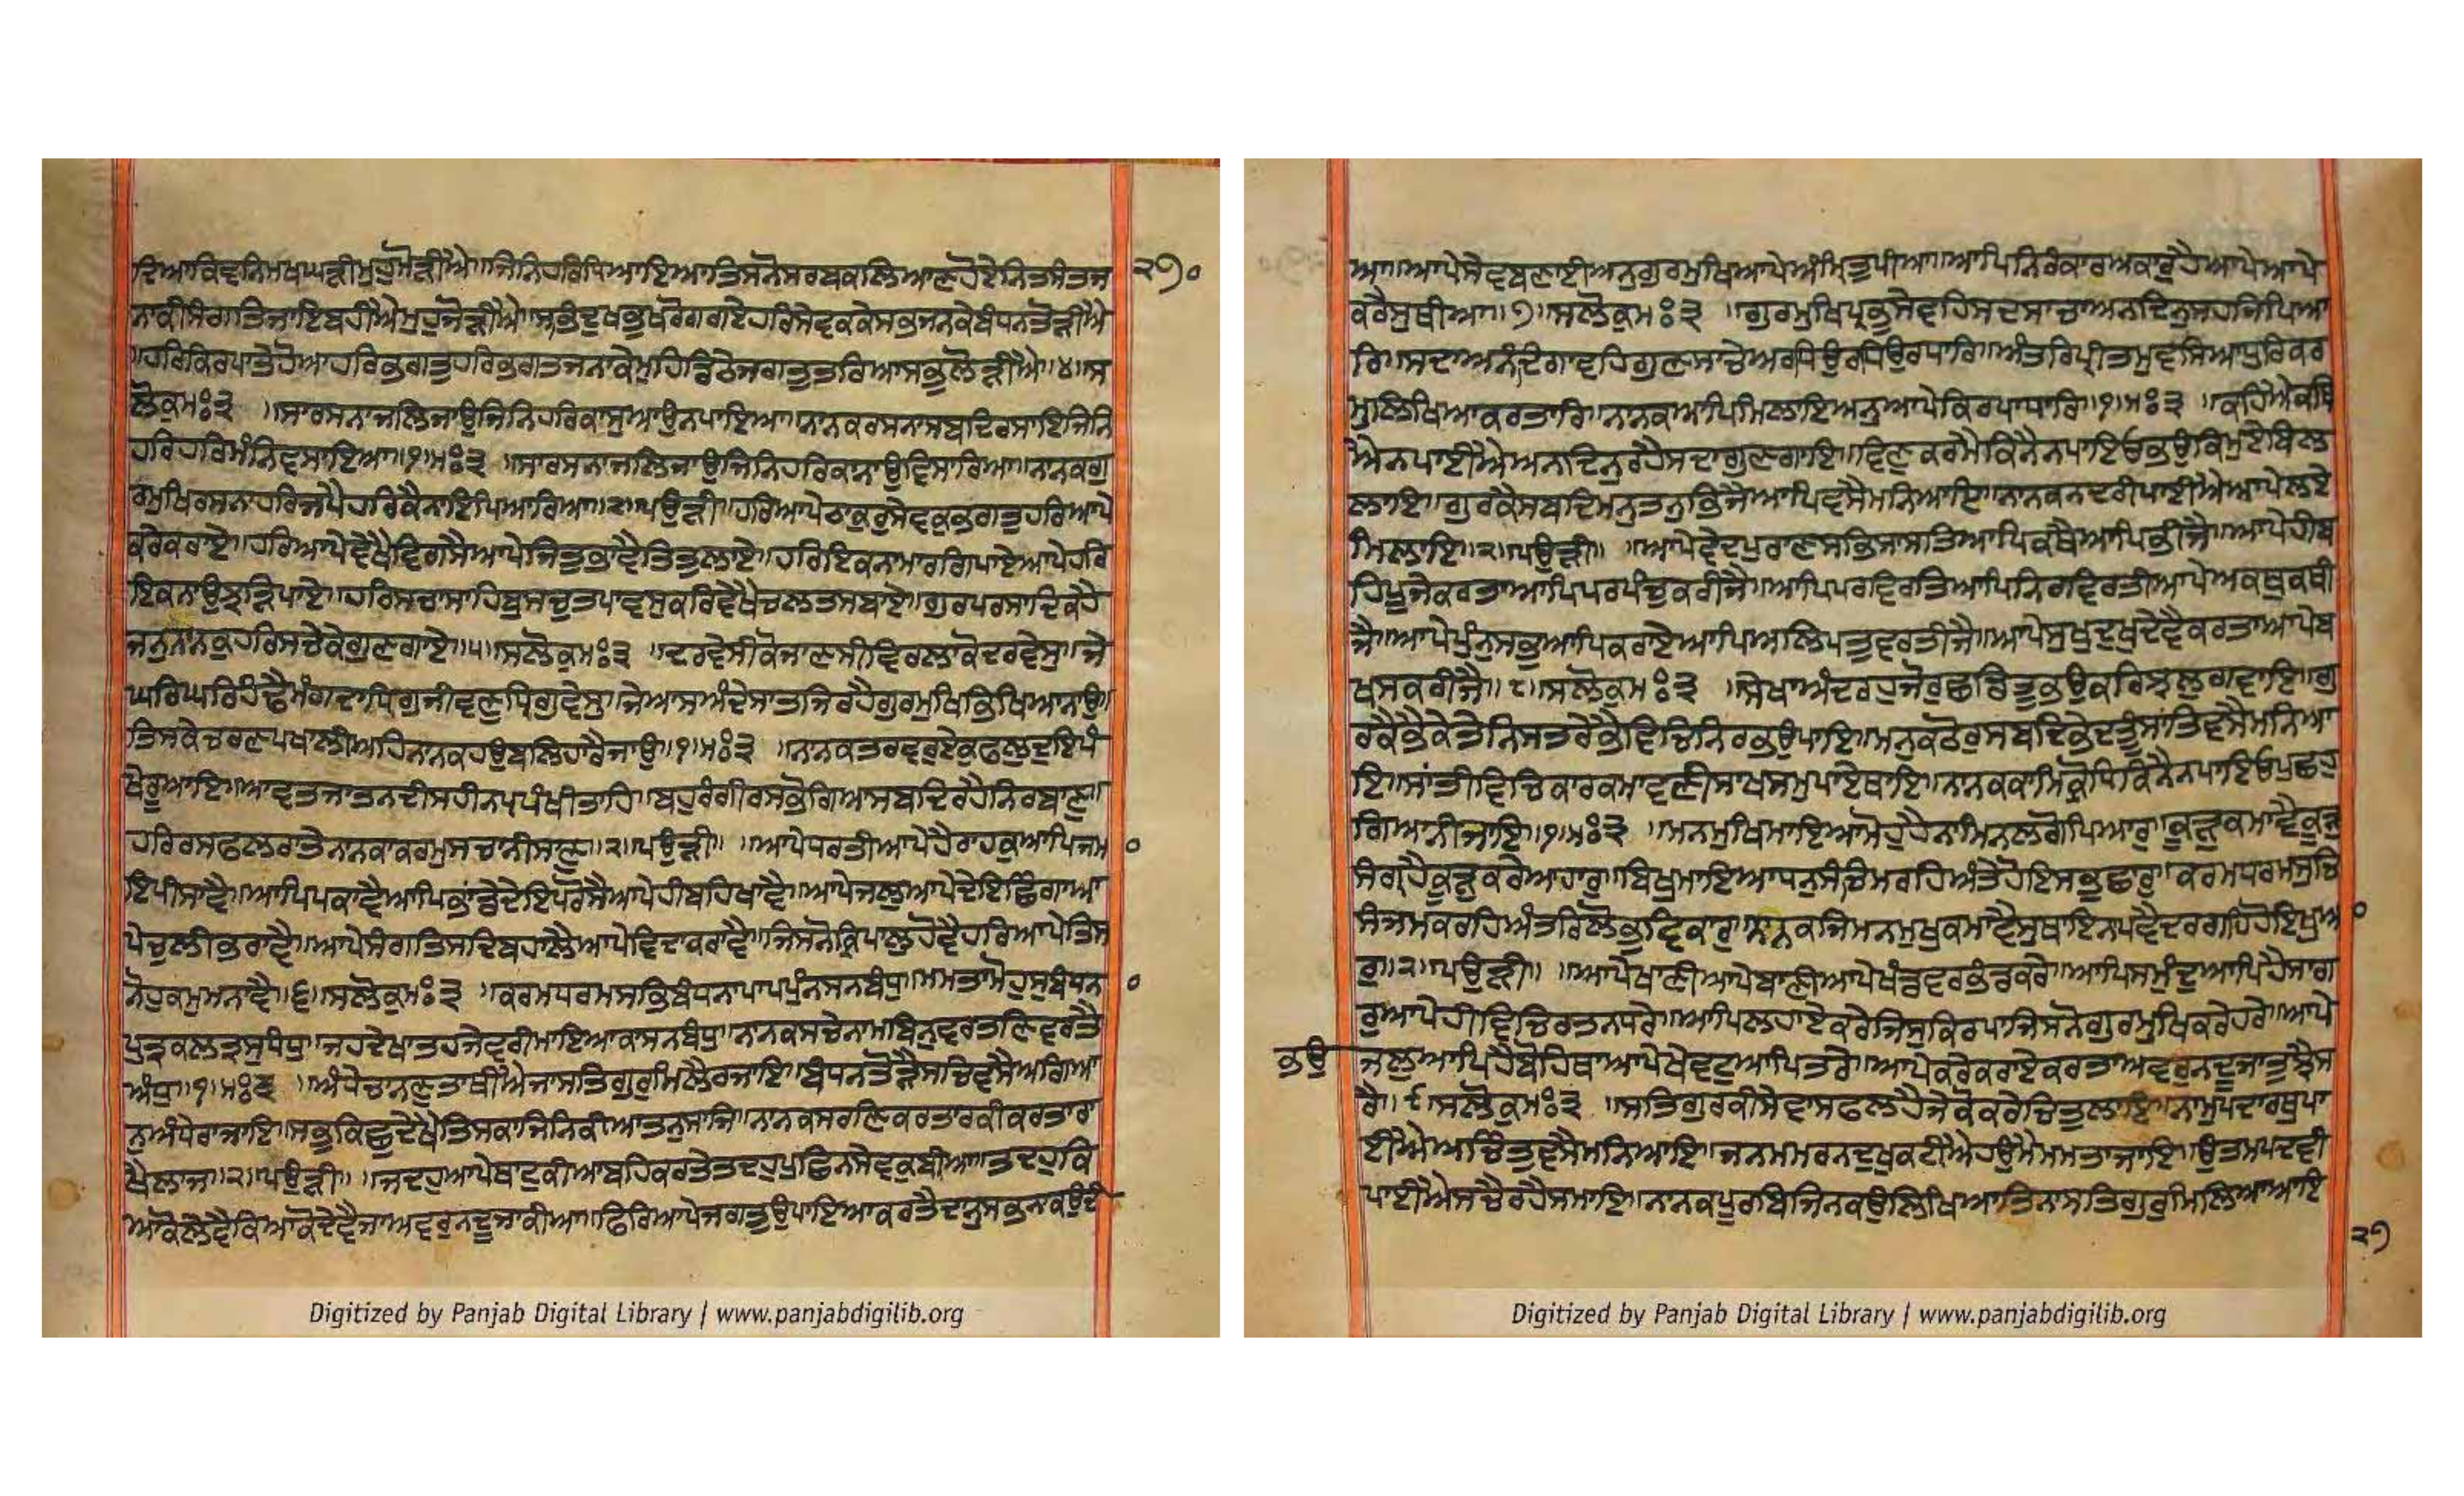 ਦਿਆਕਿਵਨਿਮਖਘੜੀਮੁਹੁਮੋੜੀਐ॥ਜਿਨਿਹਰਿਧਿਆਇਆਤਿਸਨੋਸਰਬਕਲਿਆਣਹੋਏਨਿਤਸੰਤਜ ੨੭੦
ਨਾਕੀਸੰਗਤਿਜਾਇਬਹੀਐਮੁਹੁਜੋੜੀਐ॥ਸਭਿਦੁਖਭੁਖਰੋਗਗਏਹਰਿਸੇਵਕਕੇਸਭਜਨਕੇਬੰਧਨਤੋੜੀਐ
॥ਹਰਿਕਿਰਪਾਤੇਹੋਆਹਰਿਭਗਤੁਹਰਿਭਗਤਜਨਾਕੈਮੁਹਿਡਿਠੈਜਗਤੁਤਰਿਆਸਭੁਲੋੜੀਐ॥੪॥ਸ
ਲੋਕੁਮਃ੩ ॥ਸਾਰਸਨਾਜਲਿਜਾਉਜਿਨਿਹਰਿਕਾਸੁਆਉਨਪਾਇਆ॥ਨਾਨਕਰਸਨਾਸਬਦਿਰਸਾਇਜਿਨਿ
ਹਰਿਹਰਿਮੰਨਿਵਸਾਇਆ॥੧॥ਮਃ੩ ॥ਸਾਰਸਨਾਜਲਿਜਾਉਜਿਨਿਹਰਿਕਾਨਾਉਵਿਸਾਰਿਆ॥ਨਾਨਕਗੁ
ਰਮੁਖਿਰਸਨਾਹਰਿਜਪੈਹਰਿਕੈਨਾਇਪਿਆਰਿਆ॥੨॥ਪਉੜੀ॥ਹਰਿਆਪੇਠਾਕੁਰੁਸੇਵਕੁਭਗਤੁਹਰਿਆਪੇ
ਕਰੇਕਰਾਏ॥ਹਰਿਆਪੇਵੇਖੈਵਿਗਸੈਆਪੇਜਿਤੁਭਾਵੈਤਿਤੁਲਾਏ॥ਹਰਿਇਕਨਾਮਾਰਗਿਪਾਏਆਪੇਹਰਿ
ਇਕਨਾਉਝੜਿਪਾਏ॥ਹਰਿਸਚਾਸਾਹਿਬੁਸਚੁਤਪਾਵਸੁਕਰਿਵੇਖੈਚਲਤਸਬਾਏ॥ਗੁਰਪਰਸਾਦਿਕਹੈ
ਜਨੁਨਾਨਕੁਹਰਿਸਚੇਕੇਗੁਣਗਾਏ॥੫॥ਸਲੋਕੁਮਃ੩ ॥ਦਰਵੇਸੀਕੋਜਾਣਸੀਵਿਰਲਾਕੋਦਰਵੇਸੁ॥ਜੇ
ਘਰਿਘਰਿਹੰਢੈਮੰਗਦਾਧਿਗੁਜੀਵਣੁਧ੍ਰਿਗੁਵੇਸੁ॥ਜੇਆਸਾਅੰਦੇਸਾਤਜਿਰਹੈਗੁਰਮੁਖਿਭਿਖਿਆਨਾਉ॥
ਤਿਸਕੇਚਰਣਪਖਾਲੀਅਹਿਨਾਨਕਹਉਬਲਿਹਾਰੈਜਾਉ॥੧॥ਮਃ੩ ॥ਨਾਨਕਤਰਵਰੁਏਕੁਫਲੁਦੁਇਪੰ
ਖੇਰੂਆਇ॥ਆਵਤਜਾਤਨਦੀਸਹੀਨਪਪੰਖੀਤਾਹਿ॥ਬਹੁਰੰਗੀਰਸਭੋਗਿਆਸਬਦਿਰਹੈਨਿਰਬਾਣੁ॥
ਹਰਿਰਸਫਲਰਾਤੇਨਾਨਕਾਕਰਮੁਸਚਾਨੀਸਾਣੁ॥੨॥ਪਉੜੀ॥ ॥ਆਪੇਧਰਤੀਆਪੇਹੈਰਾਹਕੁਆਪਿਜਮਾ
ਇਪੀਸਾਵੈ॥ਆਪਿਪਕਾਵੈਆਪਿਭਾਂਡੇਦੇਇਪਰੋਸੈਆਪੇਹੀਬਹਿਖਾਵੈ॥ਆਪੇਜਲੁਆਪੇਦੇਇਛਿੰਗਾਆ
ਪੇਚੁਲੀਭਰਾਵੈ॥ਆਪੇਸੰਗਤਿਸਦਿਬਹਾਲੈਆਪੇਵਿਦਾਕਰਾਵੈ॥ਜਿਸਨੋਕਿਰਪਾਲੁਹੋਵੈਹਰਿਆਪੇਤਿਸ
ਨੋਹੁਕਮੁਮਨਾਵੈ॥੬॥ਸਲੋਕੁਮਃ੩ ॥ਕਰਮਧਰਮਸਭਿਬੰਧਨਾਪਾਪਪੁੰਨਸਨਬੰਧੁ॥ਮਮਤਾਮੋਹੁਸੁਬੰਧਨਾ
ਪੁਤ੍ਰਕਲਤ੍ਰਸੁਧੰਧੁ॥ਜਹਦੇਖਾਤਹਜੇਵਰੀਮਾਇਆਕਾਸਨਬੰਧੁ॥ਨਾਨਕਸਚੇਨਾਮਬਿਨੁਵਰਤਣਿਵਰਤੈ
ਅੰਧੁ॥੧॥ਮਃ੩ ॥ਅੰਧੇਚਾਨਣੁਤਾਥੀਐਜਾਸਤਿਗੁਰੁਮਿਲੈਰਜਾਇ॥ਬੰਧਨਤੋੜੈਸਚਿਵਸੈਅਗਿਆ
ਨੁਅੰਧੇਰਾਜਾਇ॥ਸਭੁਕਿਛੁਦੇਖੈਤਿਸਕਾਜਿਨਿਕੀਆਤਨੁਸਾਜਿ॥ਨਾਨਕਸਰਣਿਕਰਤਾਰਕੀਕਰਤਾਰਾ
ਖੈਲਾਜ॥੨॥ਪਉੜੀ॥ ॥ਜਦਹੁਆਪੇਥਾਟੁਕੀਆਬਹਿਕਰਤੈਤਦਹੁਪੁਛਿਨਸੇਵਕੁਬੀਆ॥ਤਦਹੁਕਿ
ਆਕੋਲੇਵੈਕਿਆਕੋਦੇਵੈਜਾਅਵਰੁਨਦੂਜਾਕੀਆ॥ਫਿਰਿਆਪੇਜਗਤੁਉਪਾਇਆਕਰਤੈਦਾਨੁਸਭਨਾਕਉਦੀ
ਆ॥ਆਪੇਸੇਵਬਣਾਈਅਨੁਗੁਰਮੁਖਿਆਪੇਅੰਮ੍ਰਿਤੁਪੀਆ॥ਆਪਿਨਿਰੰਕਾਰਅਕਾਰੁਹੈਆਪੇਆਪੇ
ਕਰੈਸੁਥੀਆ॥੭॥ਸਲੋਕੁਮਃ੩ ॥ਗੁਰਮੁਖਿਪ੍ਰਭੁਸੇਵਹਿਸਦਸਾਚਾਅਨਦਿਨੁਸਹਜਿਪਿਆ
ਰਿ॥ਸਦਾਅਨੰਦਿਗਾਵਹਿਗੁਣਸਾਚੇਅਰਧਿਉਰਧਿਉਰਧਾਰਿ॥ਅੰਤਰਿਪ੍ਰੀਤਮੁਵਸਿਆਧੁਰਿਕਰ
ਮੁਲਿਖਿਆਕਰਤਾਰਿ॥ਨਾਨਕਆਪਿਮਿਲਾਇਅਨੁਆਪੇਕਿਰਪਾਧਾਰਿ॥੧॥ਮਃ੩ ॥ਕਹਿਐਕਥਿ
ਐਨਪਾਈਐਅਨਦਿਨੁਰਹੈਸਦਾਗੁਣਗਾਇ॥ਵਿਣੁਕਰਮੈਕਿਨੈਨਪਾਇਓਭਉਕਿਮੁਏਬਿਲ
ਲਾਇ॥ਗੁਰਕੈਸਬਦਿਮਨੁਤਨੁਭਿਜੈਆਪਿਵਸੈਮਨਿਆਇ॥ਨਾਨਕਨਦਰੀਪਾਈਐਆਪੇਲਏ
ਮਿਲਾਇ॥੨॥ਪਉੜੀ॥ ॥ਆਪੇਵੇਦਪੁਰਾਣਸਭਿਸਾਸਤਿਆਪਿਕਥੈਆਪਿਭੀਜੈ॥ਆਪੇਹੀਬ
ਹਿਪੂਜੇਕਰਤਾਆਪਿਪਰਪੰਚੁਕਰੀਜੈ॥ਆਪਿਪਰਵਿਰਤਿਆਪਿਨਿਰਵਿਰਤੀਆਪੇਅਕਥੁਕਥੀ
ਜੈ॥ਆਪੇਪੁੰਨੁਸਭੁਆਪਿਕਰਾਏਆਪਿਅਲਿਪਤੁਵਰਤੀਜੈ॥ਆਪੇਸੁਖੁਦੁਖੁਦੇਵੈਕਰਤਾਆਪੇਬ
ਖਸਕਰੀਜੈ॥੮॥ਸਲੋਕੁਮਃ੩ ॥ਸੇਖਾਅੰਦਰਹੁਜੋਰੁਛਡਿਤੂਭਉਕਰਿਝਲੁਗਵਾਇ॥ਗੁ
ਰਕੈਭੈਕੇਤੇਨਿਸਤਰੇਭੈਵਿਚਿਨਿਰਭਉਪਾਇ॥ਮਨੁਕਠੋਰੁਸਬਦਿਭੇਦਤੂੰਸਾਂਤਿਵਸੈਮਨਿਆ
ਇ॥ਸਾਂਤੀਵਿਚਿਕਾਰਕਮਾਵਣੀਸਾਖਸਮੁਪਾਏਥਾਇ॥ਨਾਨਕਕਾਮਿਕ੍ਰੋਧਿਕਿਨੈਨਪਾਇਓਪੁਛਹੁ
ਗਿਆਨੀਜਾਇ॥੧॥ਮਃ੩ ॥ਮਨਮੁਖਿਮਾਇਆਮੋਹੁਹੈਨਾਮਿਨਲਗੋਪਿਆਰੁ॥ਕੂੜੁਕਮਾਵੈਕੂੜੁ
ਸੰਗ੍ਰਹੈਕੂੜੁਕਰੇਆਹਾਰੁ॥ਬਿਖੁਮਾਇਆਧਨੁਸੰਚਿਮਰਹਿਅੰਤੇਹੋਇਸਭੁਛਾਰੁ॥ਕਰਮਧਰਮਸੁਚਿ
ਸੰਜਮਕਰਹਿਅੰਤਰਿਲੋਭੁਵਿਕਾਰੁ॥ਨਾਨਕਜਿਮਨਮੁਖੁਕਮਾਵੈਸੁਥਾਇਨਪਵੈਦਰਗਹਿਹੋਇਖੁਆ
ਰੁ॥੨॥ਪਉੜੀ॥ ॥ਆਪੇਖਾਣੀਆਪੇਬਾਣੀਆਪੇਖੰਡਵਰਭੰਡਕਰੇ॥ਆਪਿਸਮੁੰਦੁਆਪਿਹੈਸਾਗ
ਰੁਆਪੇਹੀਵਿਚਿਰਤਨਧਰੇ॥ਆਪਿਲਹਾਏਕਰੇਜਿਸੁਕਿਰਪਾਜਿਸਨੋਗੁਰਮੁਖਿਕਰੇਹਰੇ॥ਆਪੇ
ਭਉ ਜਲੁਆਪਿਹੈਬੋਹਿਥਾਆਪੇਖੇਵਟੁਆਪਿਤਰੇ॥ਆਪੇਕਰੇਕਰਾਏਕਰਤਾਅਵਰੁਨਦੂਜਾਤੁਝੈਸ
ਰੇ॥੯॥ਸਲੋਕੁਮਃ੩ ॥ਸਤਿਗੁਰਕੀਸੇਵਾਸਫਲਹੈਜੇਕੋਕਰੇਚਿਤੁਲਾਇ॥ਨਾਮੁਪਦਾਰਥੁਪਾ
ਈਐਅਚਿੰਤੁਵਸੈਮਨਿਆਇ॥ਜਨਮਮਰਨਦੁਖੁਕਟੀਐਹਉਮੈਮਮਤਾਜਾਇ॥ਉਤਮਪਦਵੀ
ਪਾਈਐਸਚੈਰਹੈਸਮਾਇ॥ਨਾਨਕਪੂਰਬਿਜਿਨਕਉਲਿਖਿਆਤਿਨਾਸਤਿਗੁਰੁਮਿਲਿਆਆਇ
੨੭
Digitized by Panjab Digital Library | www.panjabdigilib.org
Digitized by Panjab Digital Library | www.panjabdigilib.org